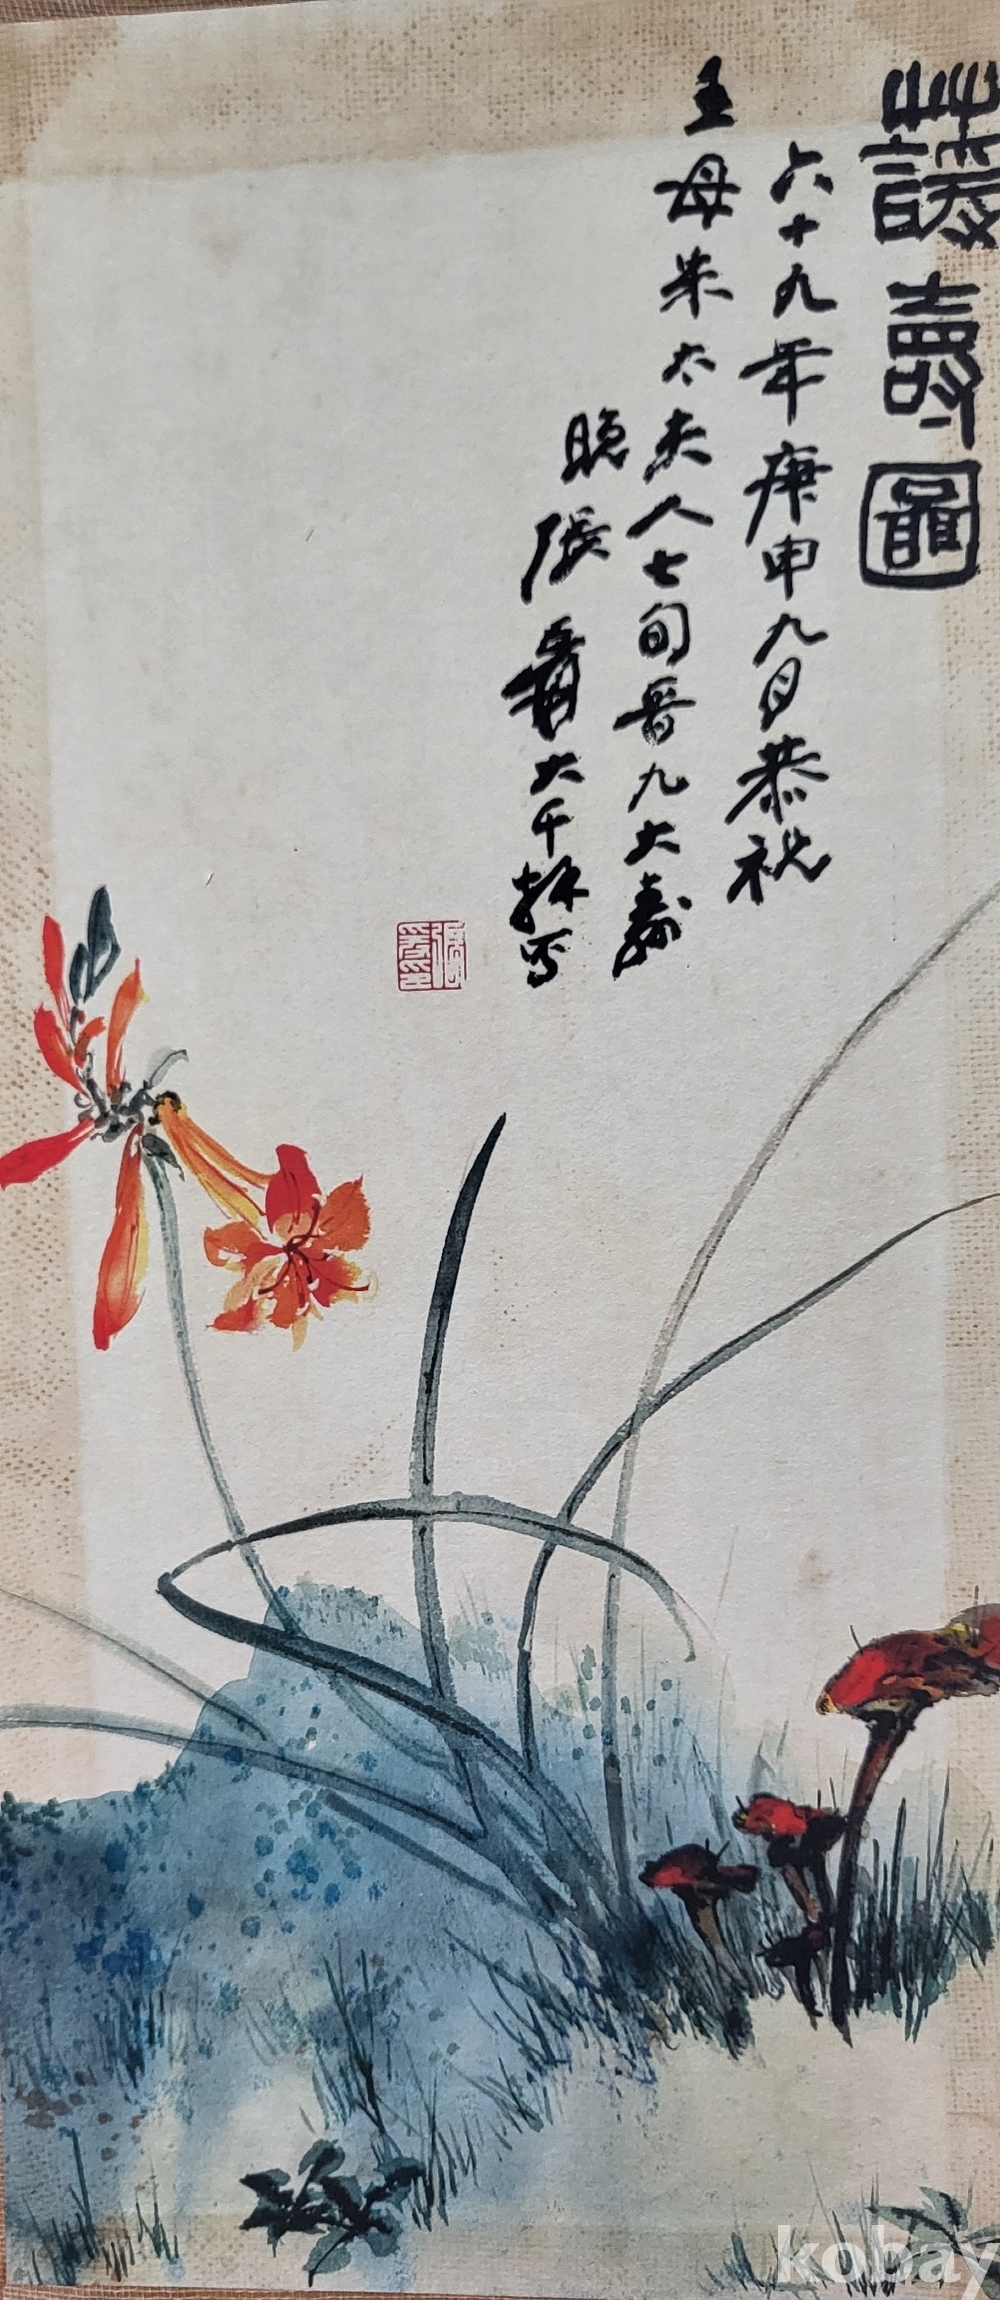 諼壽圖
六十九年庚申九月恭祝
王母朱太夫人七旬晉九大壽
張爰大千拜寫
kobay